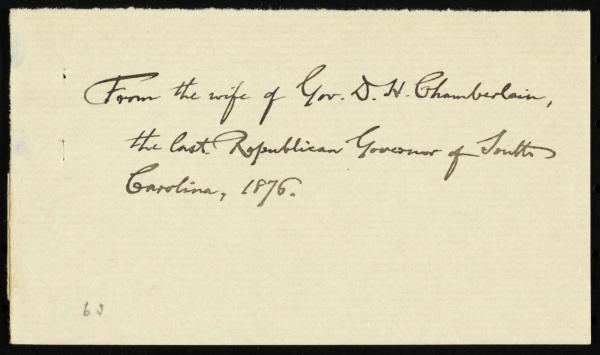 From the wife of Gov. D. H. Chamberlain,
the last Republican Governor of South
Carolina, 1876.
63